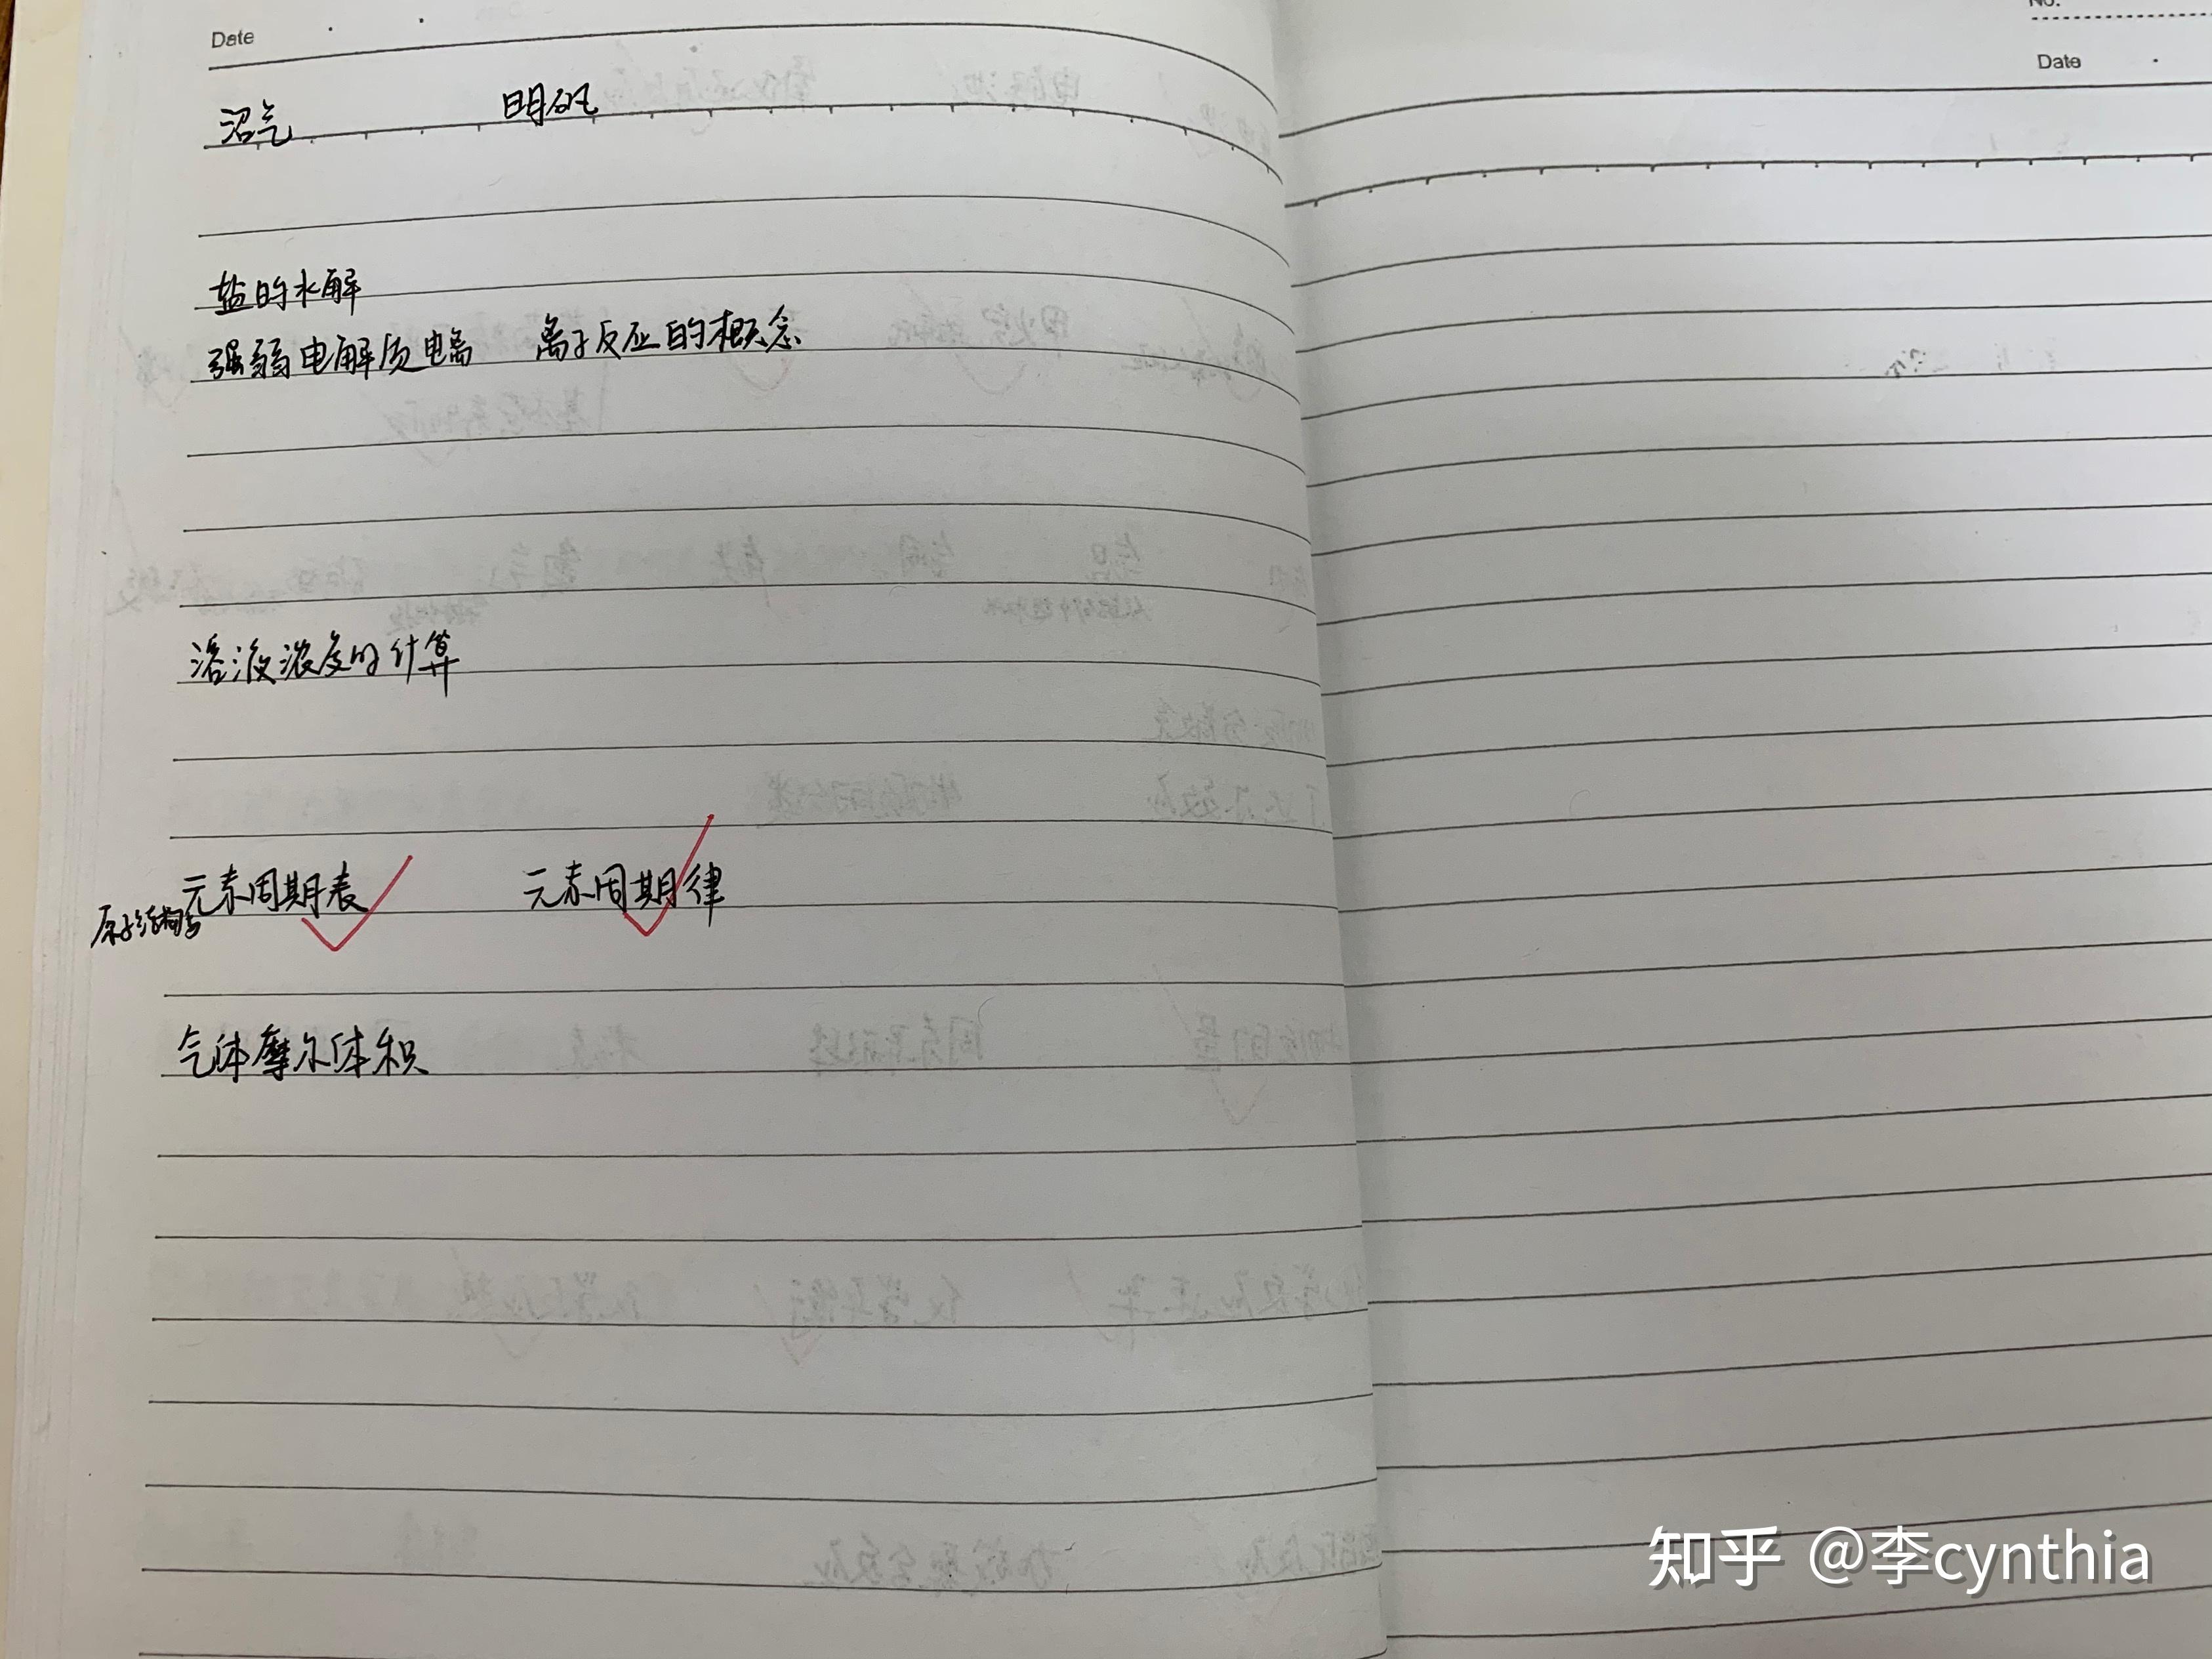 Date
沼气 明矾
盐的水解
强弱电解质电离 离子反应的概念
溶液浓度的计算
原子结构与元素周期表 元素周期律
气体摩尔体积
No.
Date
知乎 @李cynthia